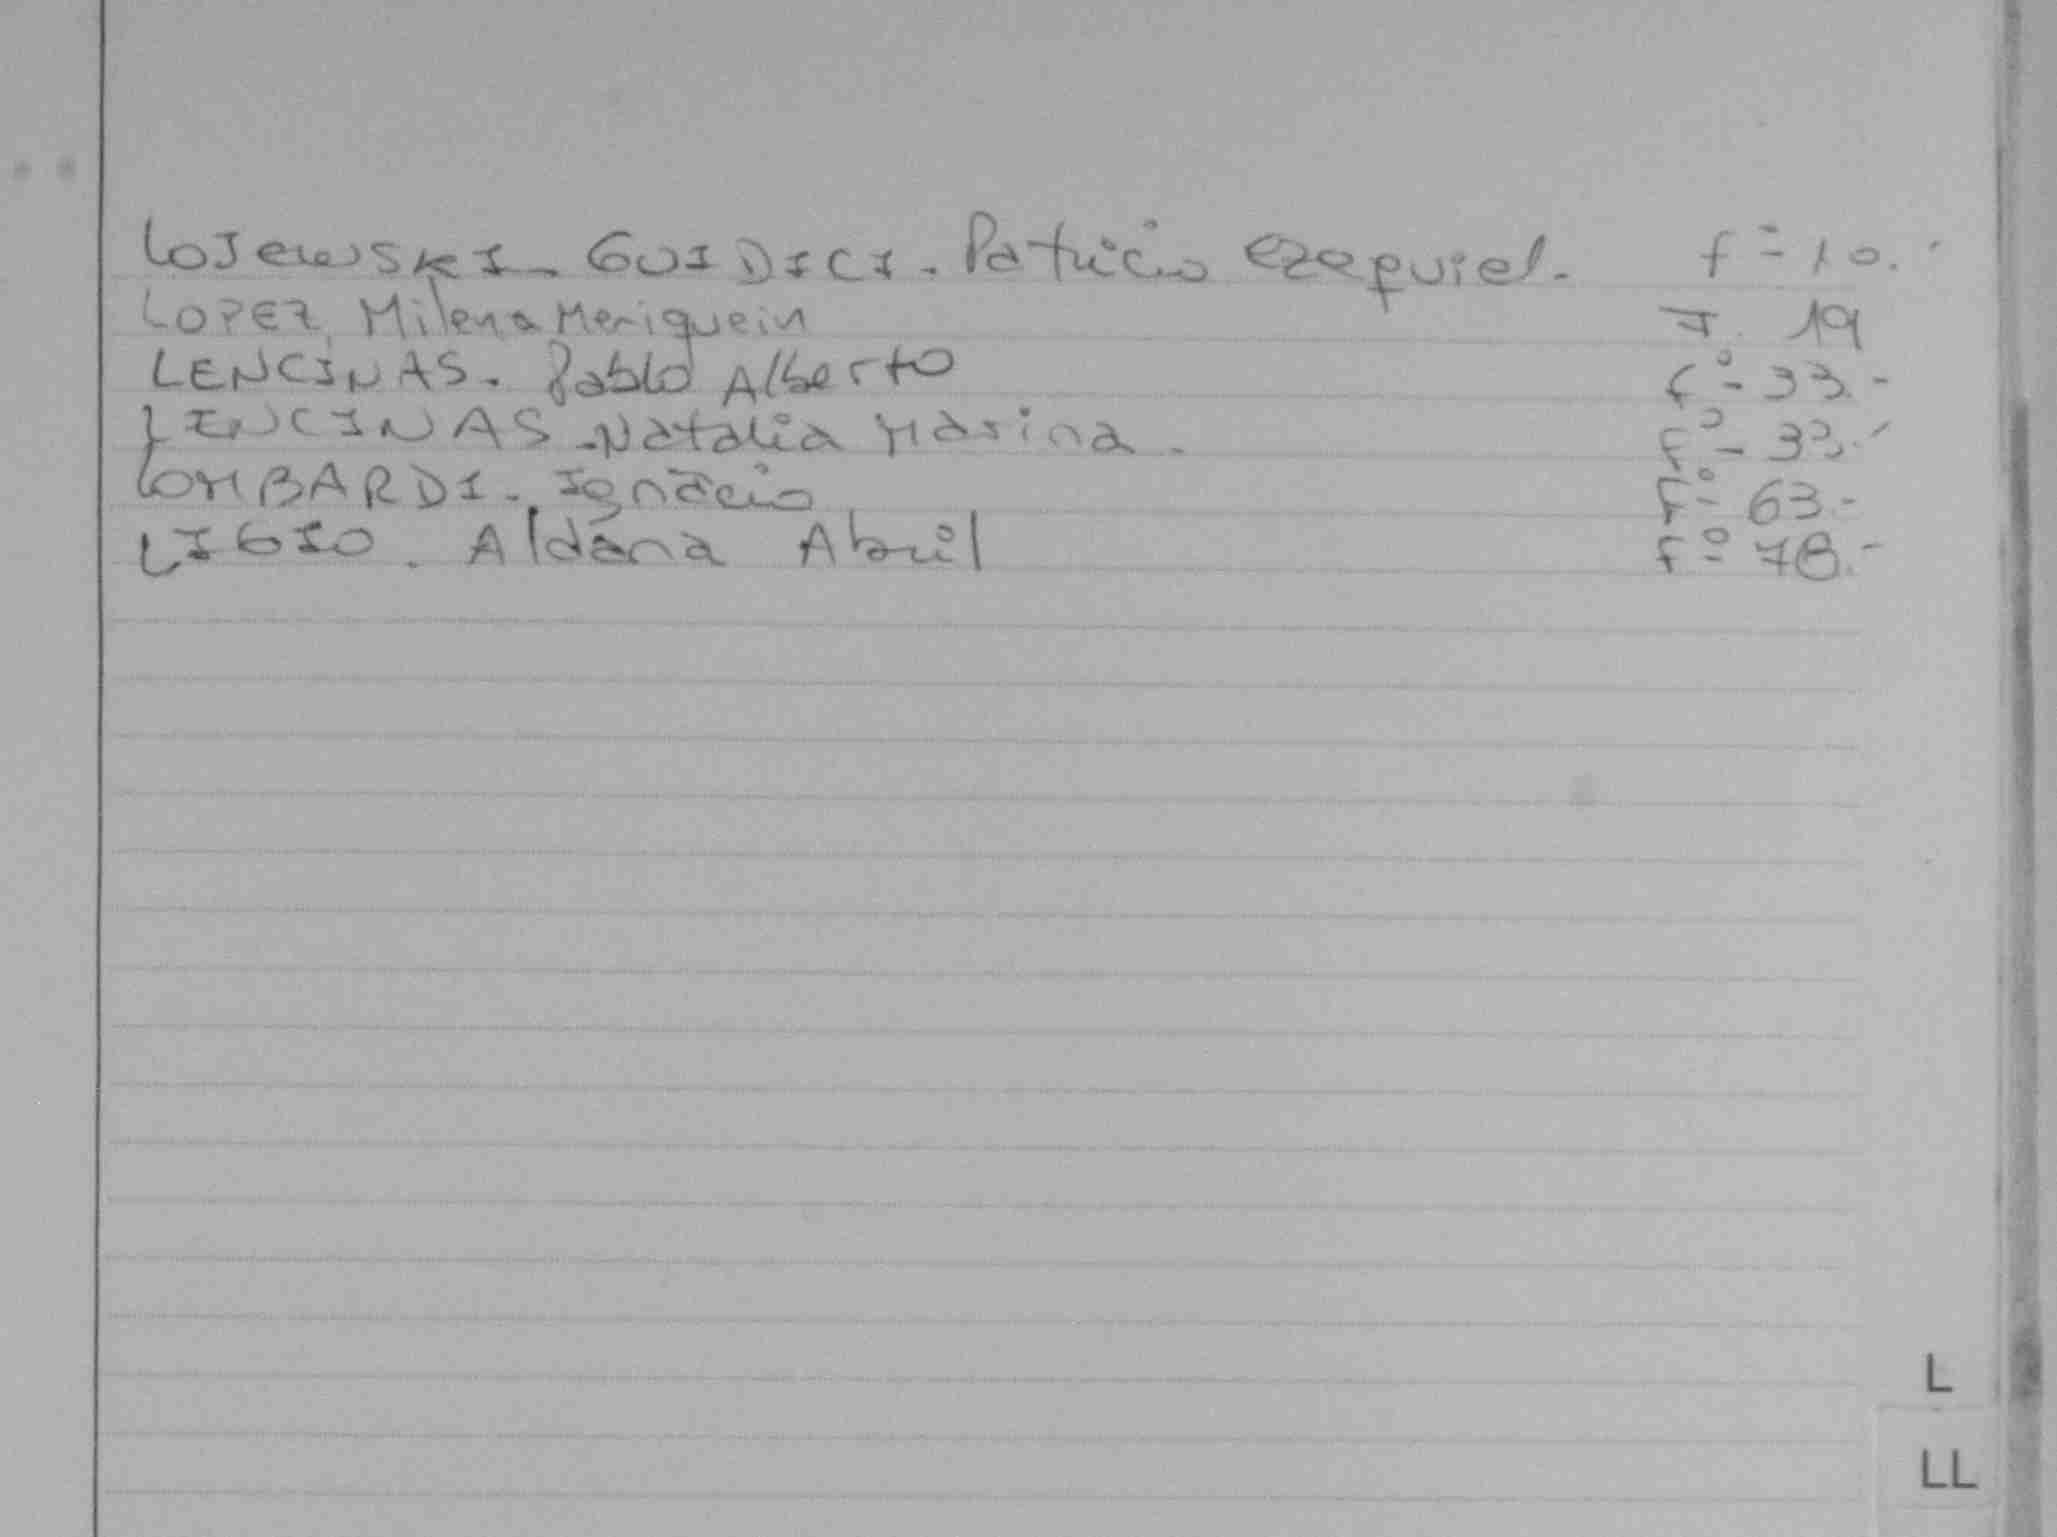 LOJewSKI - GUIDICI. Patricio Ezequiel. fº 10.-
LOPEZ Milena Meriquein F. 19
LENCINAS. Pablo Alberto fº- 33.-
LENCINAS. Natalia Marina. fº- 33.-
LOMBARDI. Ignacio fº- 63.-
LIGIO. Aldana Abril fº- 78.-
L
LL